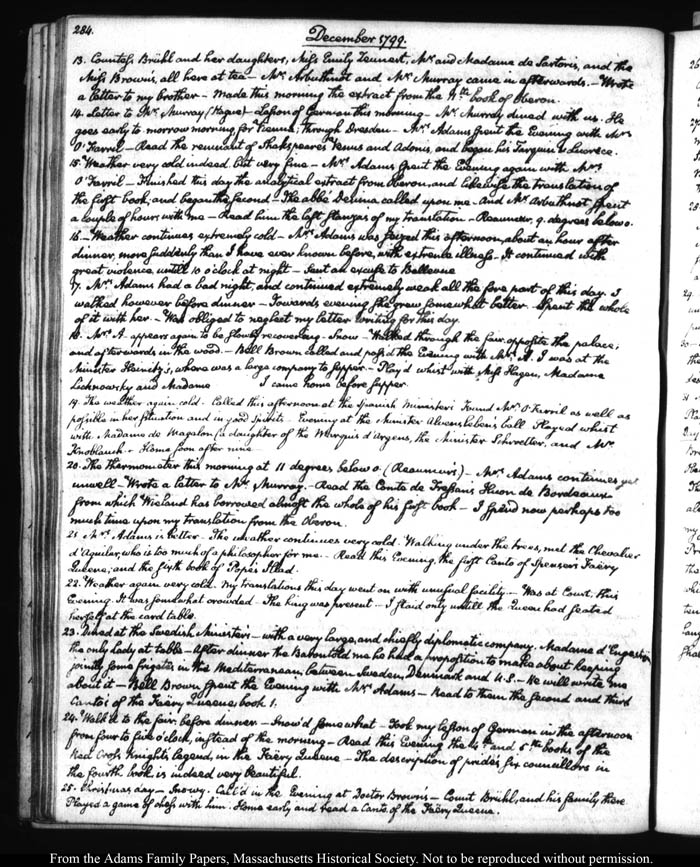 284.
December 1799.
13. Countess Brühl and her daughters, Miss Emily Dennert, Mr and Madame de Sartoris, and the
Miss Brown's, all here at tea — Mr. Arbuthnot and Mr. Murray came in afterwards. — Wrote
a letter to my brother — Made this morning the extract from the 4th book of Oberon.
14. Letter to Mr. Murray (Hague) — Lesson of German this morning — Mr. Murray dined with us. He
goes early to morrow morning for Vienna, through Dresden — Mrs. Adams spent the Evening with Mrs
O'Farril — Read the remnant of Shakspeare's Venus and Adonis, and began his Tarquin & Lucrece.
15. Weather very cold indeed, but very fine — Mrs. Adams spent the Evening again with Mrs
O'Farril — Finished this day the analytical extract from Oberon, and likewise the translation of
the first book; and began the second — The abbé Denina called upon me — And Mr. Arbuthnot spent
a couple of hours with me — Read him the last stanzas of my translation — Reaumur, 9. degrees below 0.
16 — Weather continues extremely cold — Mrs. Adams was seized this afternoon, about an hour after
dinner, more suddenly than I have ever known before, with extreme illness — It continued with
great violence untill 10 o'clock at night — Sent an excuse to Bellevue
17. Mrs. Adams had a bad night, and continued extremely weak all the fore part of this day. I
walked however before dinner — Towards evening she grew somewhat better — Spent the whole
of it with her. Was obliged to neglect my letter writing for this day.
18. Mrs. A. appears again to be slowly recovering — Snow — Walked through the fair opposite the palace;
and afterwards in the wood. — Bell Brown called and pass'd the Evening with Mrs. A. I was at the
Minister Heinitz's, where was a large company to supper — Play'd whist with Miss Hagen, Madame
Lichnowsky and Madame I came home before supper
19. The weather again cold — Called this afternoon at the Spanish Minister's Found Mrs. O'Farril as well as
possible in her situation and in good spirits — Evening at the Minister Alvensleben's ball Played whist
with Madame de Magalon (a daughter of the Marquis d'Argens, the Minister Schroetter, and Mr.
Knoblauch — Home soon after nine
20. The thermometer this morning at 11 degrees below 0. (Reaumur) — Mrs. Adams continues yet
unwell — Wrote a letter to Mr. Murray. — Read the Comte de Tressan's Huon de Bordeaux
from which Wieland has borrowed almost the whole of his first book — I spend now perhaps too
much time upon my translation from the Oberon.
21. Mrs. Adams is better — The weather continues very cold. Walking under the trees, met the Chevalier
d'Aguilar, who is too much of a philosopher for me — Read this Evening the first Canto of Spenser's Faëry
Queene; and the sixth book of Pope's Iliad.
22. Weather again very cold. My translations this day went on with unusual facility — Was at Court this
Evening. It was somewhat crowded. The king was present — I staid only untill the Queen had seated
herself at the card table.
23. Dined at the Swedish Minister's — with a very large, and chiefly diplomatic company. Madame d'Engeström
the only lady at table — After dinner the Baron told me he had a proposition to make about keeping
jointly some frigates in the Mediterranean, between Sweden, Denmark and U.S. — He will write me
about it — Bell Brown spent the Evening with Mrs. Adams — Read to them the second and third
Canto's of the Faëry Queene, book 1.
24. Walk'd to the fair before dinner — Snow'd somewhat — Took my lesson of German in the afternoon
from four to five o'clock, instead of the morning — Read this Evening the 4th and 5th books of the
Red Cross Knight's legend, in the Faëry Queene — The description of pride's six councillors in
the fourth book is indeed very beautiful.
25. Christmas day — Snowy. Call'd in the Evening at Doctor Brown's — Count Brühl, and his family there
Played a game of chess with him. Home early and read a Canto of the Faëry Queene.
From the Adams Family Papers, Massachusetts Historical Society. Not to be reproduced without permission.